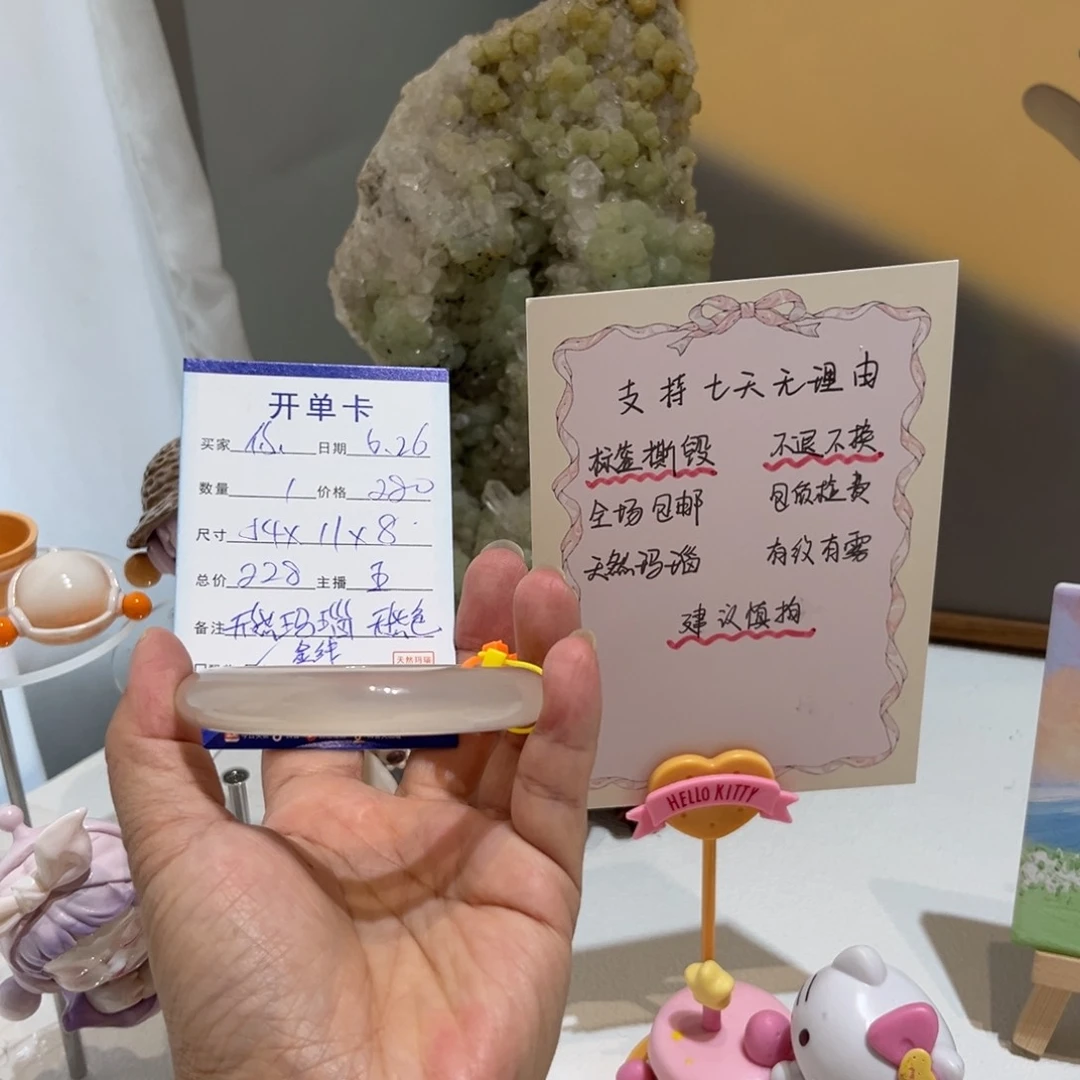 开单卡
买家 日期 6.26
数量 1 价格 280
尺寸 54x 11x8
总价 228 主播 王
备注 天然玛瑙 天然色
天然玛瑙
支持七天无理由
标签撕毁 不退不换
全场包邮 包质检费
天然玛瑙 有纹有雾
建议慎拍
HELLO KITTY